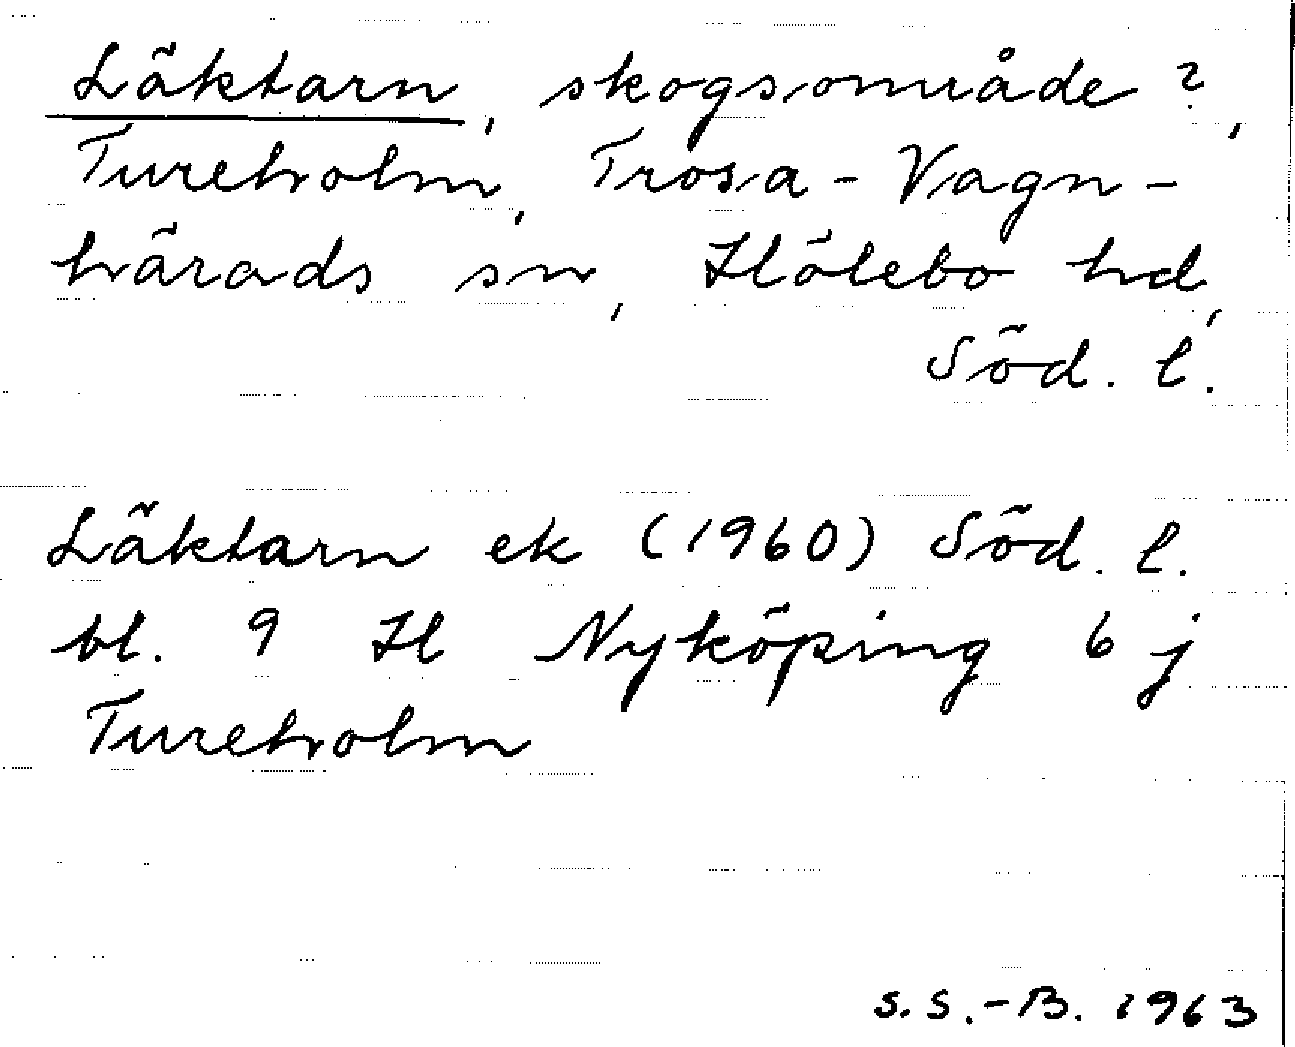 Läktarn, skogsområde?,
Tureholm, Trosa-Vagn-
härads sn, Hölebo hd,
Söd. l.
Läktarn ek (1960) Söd. l.
bl. 9 H Nyköping 6 j
Tureholm
S.S.-B. 1963